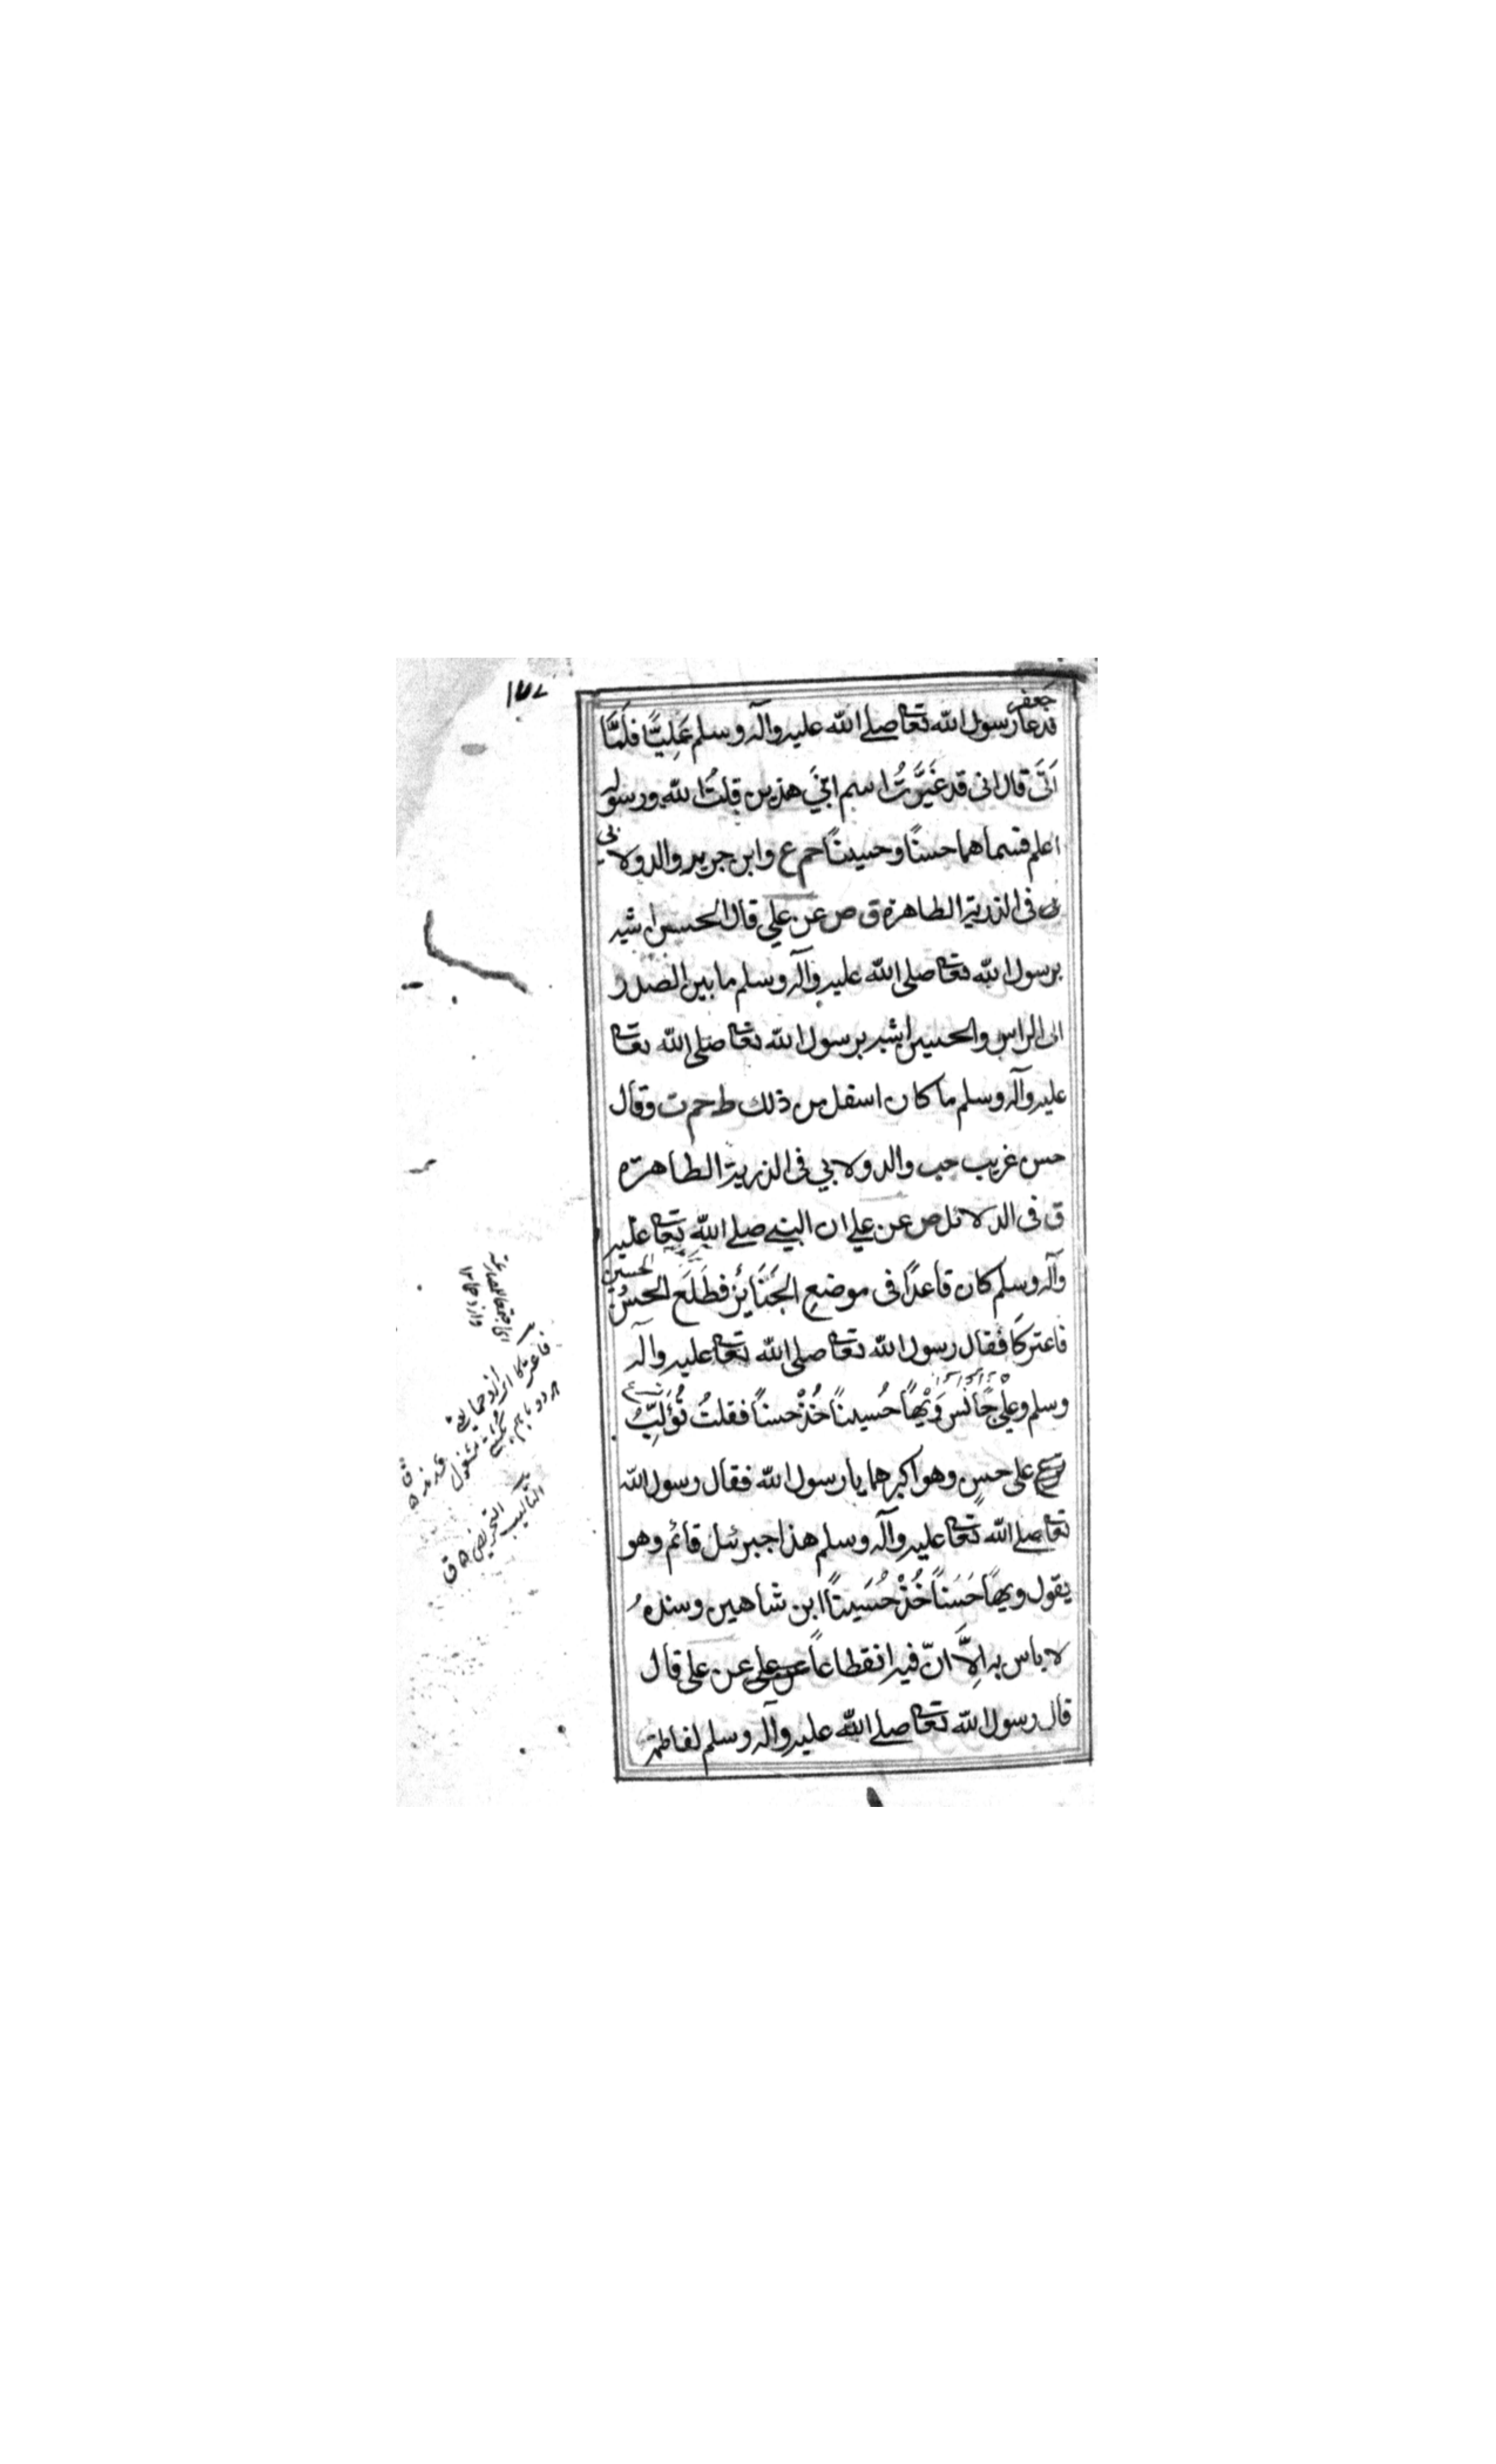 ١٧٨
جعفر
فدعا رسول الله تعا صلے الله عليه وآله وسلم عَلِيًّا فلَمَّا
اَتَى قال انى قد غَيَّرتُ اسم ابنَيَّ هذين قلتُ الله ورسوله
اعلم فسماهما حسنًا وحسينًا حم ع وابن جرير والدولابي
فى الذرية الطاهرة ق ص عن علي قال الحسن اشبه
برسول الله تعا صلى الله عليه وآله وسلم ما بين الصدر
الى الراس والحسين اشبه برسول الله تعا صلى الله تعا
عليه وآله وسلم ما كان اسفل من ذلك ط حم ت وقال
حسن غريب حب والدولابي فى الذرية الطاهرة
ق فى الدلائل ص عن علي ان النبے صلے الله تعا عليه
وآله وسلم كان قاعدًا فى موضع الجَنَايَز فطَلَع الحسنُ
الحسين
فاعتركَا فقال رسول الله تعا صلى الله تعا عليه وآله
وسلم وعلى جَالس وَيْهًا حُسينًا خُذْ حسنًا فقلتُ تُؤَلِّبُ
على حسن وهو اكبرهما يا رسول الله فقال رسول الله
تعا صلے الله تعا عليه وآله وسلم هذا جبرئيل قائم وهو
يقول ويهًا حَسَنًا خُذْ حُسَينًا ابن شاهين وسنده
لا باس به اِلَّا انّ فيه انقطاعًا عن علي عن علي قال
قال رسول الله تعا صلے الله عليه وآله وسلم لفاطمة
فاعتركا
التاليب التحريض ق